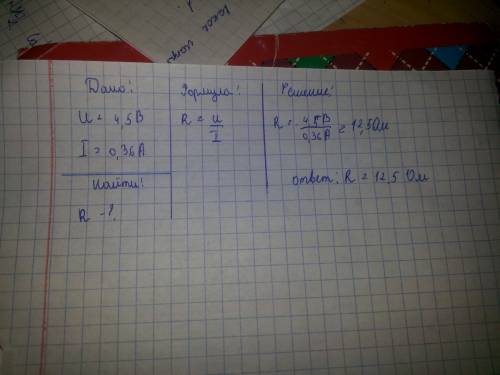 Дано:
U = 4,5 В
I = 0,36 А
Найти:
R - ?
Формула:
R = U
I
Решение:
R = 4,5 В
0,36 А
= 12,5 Ом
ответ: R = 12,5 Ом